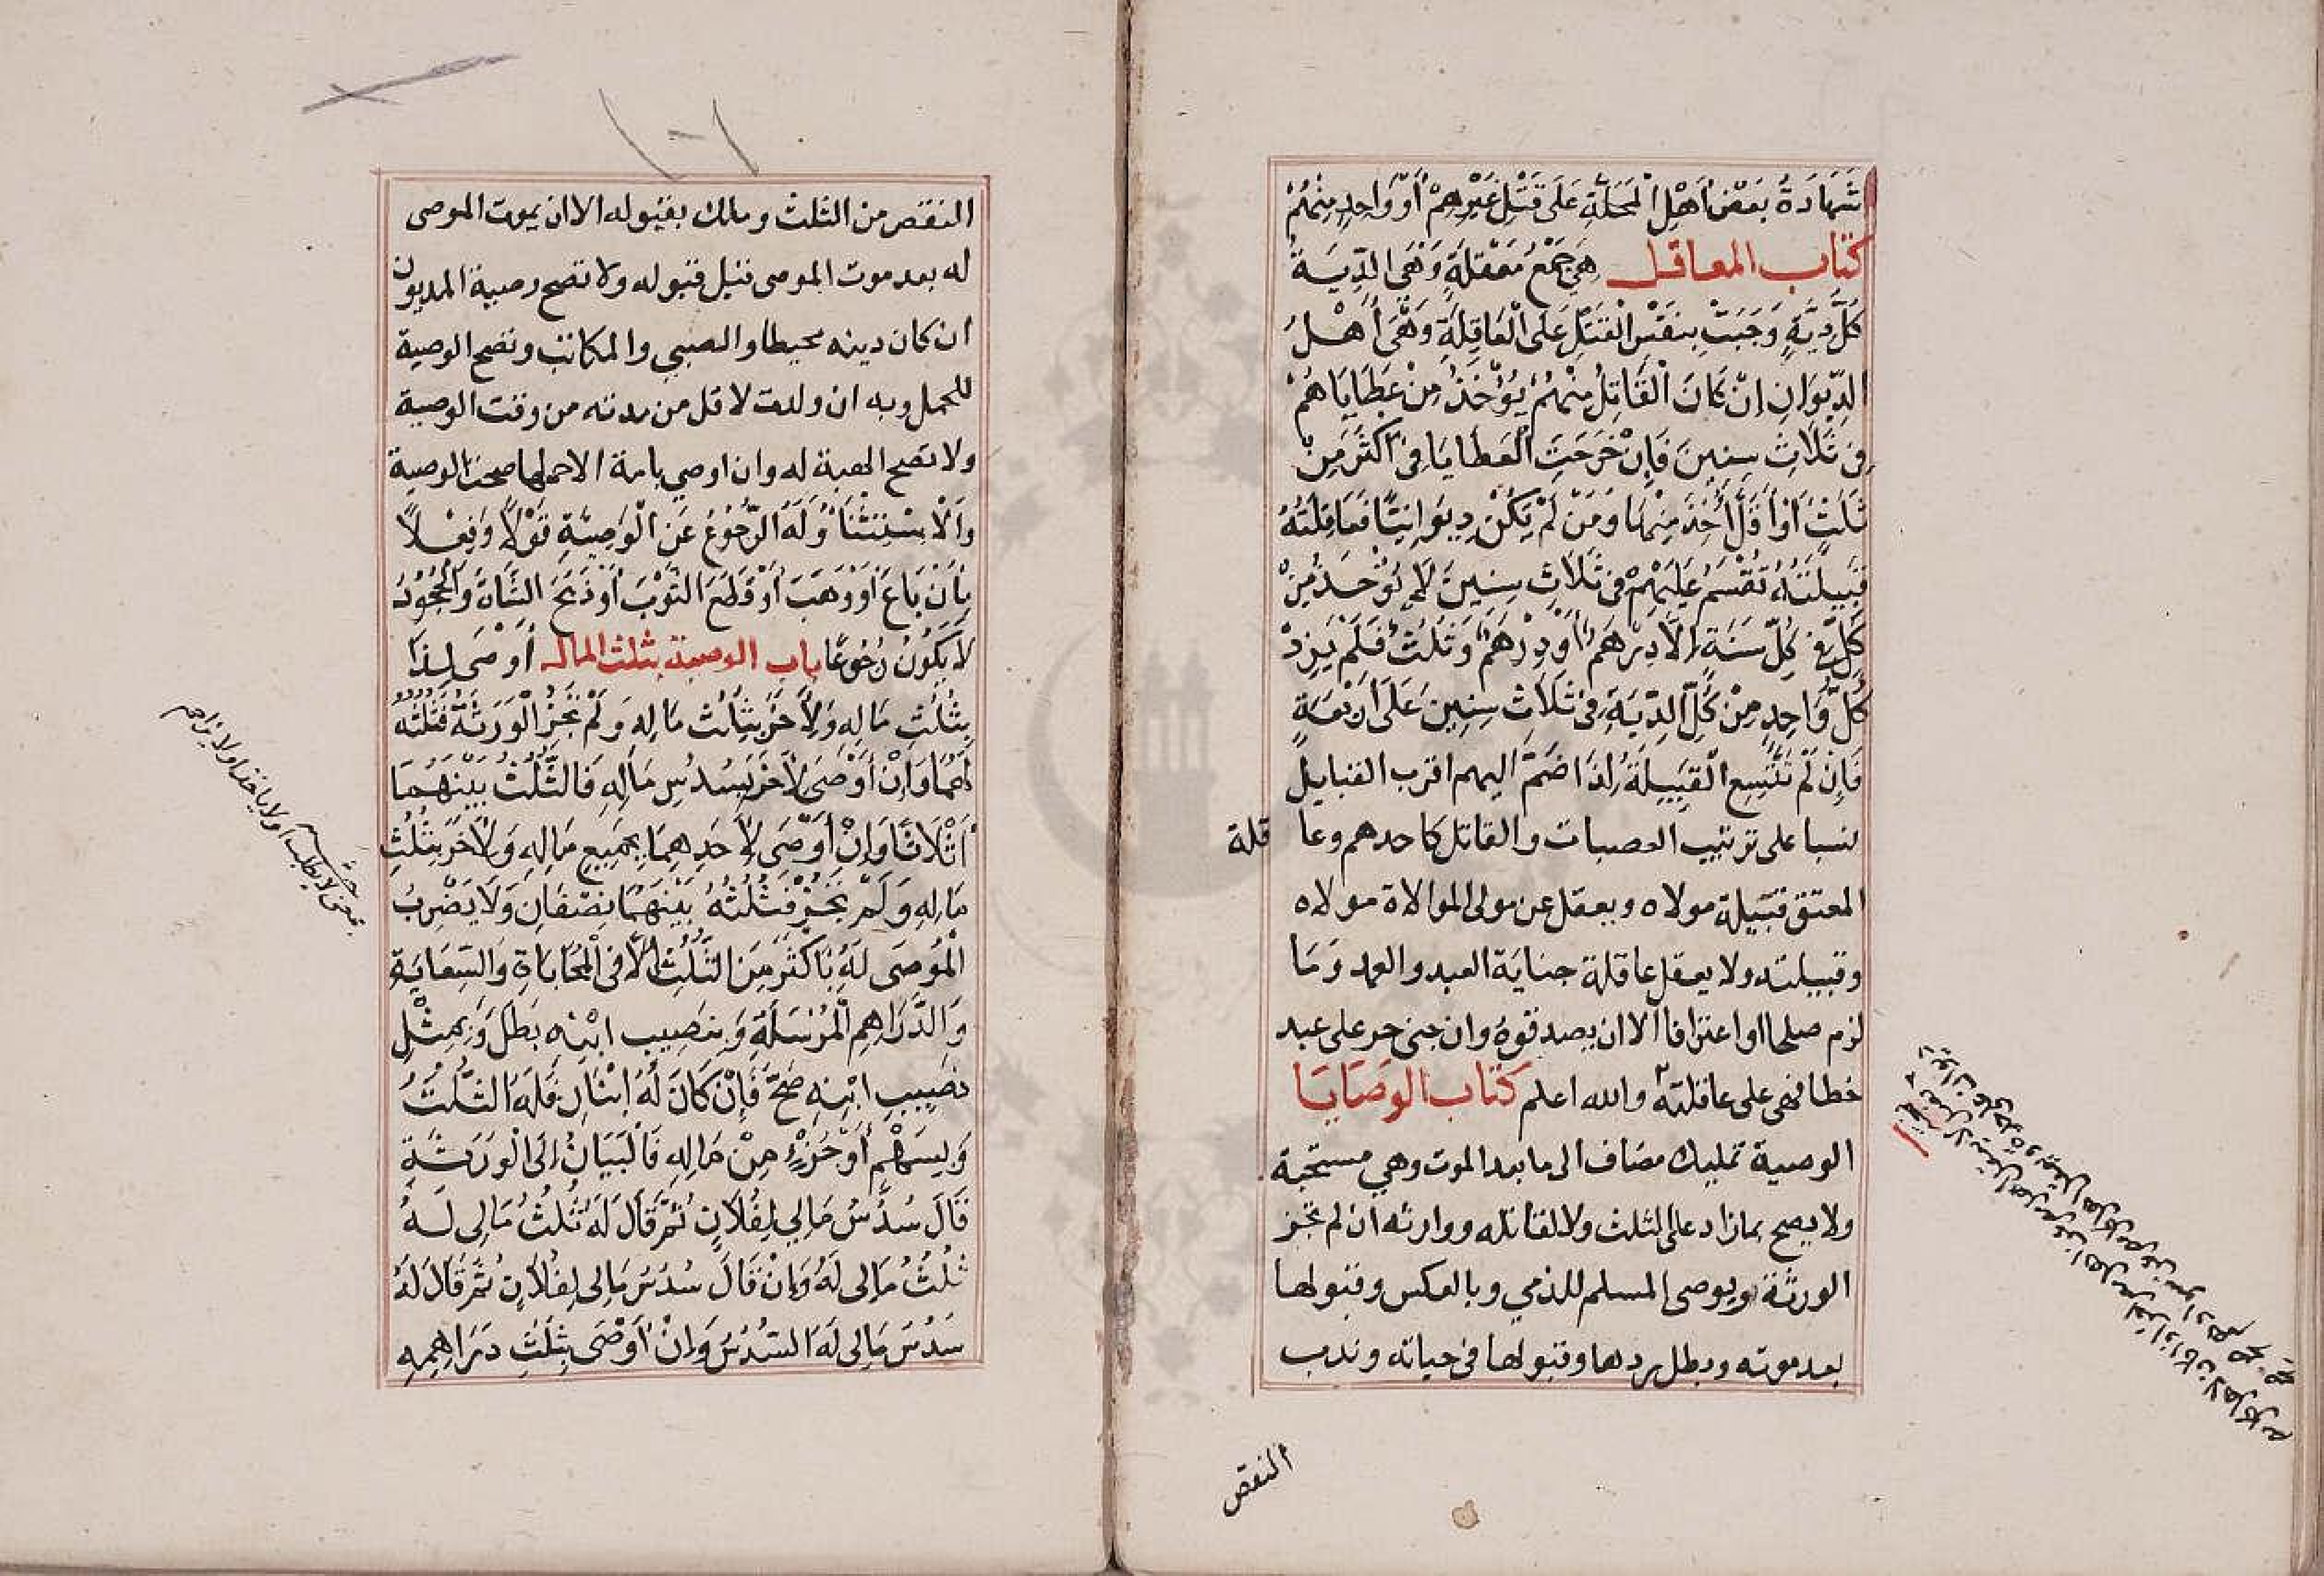 شَهَادَةُ بَعْضِ أَهْلِ الْمَحَلَّةِ عَلَى قَتْلِ غَيْرِهِمْ أَوْ وَاحِدٍ مِنْهُمْ
كتاب المعاقل هِيَ جَمْعُ مَعْقُلَةٍ وَهِيَ الدِّيَةُ
كُلُّ دِيَةٍ وَجَبَتْ بِنَفْسِ الْقَتْلِ عَلَى الْعَاقِلَةِ وَهِيَ أَهْلُ
الدِّيوَانِ إِنْ كَانَ الْقَاتِلُ مِنْهُمْ يُؤْخَذُ مِنْ عَطَايَاهُمْ
فِي ثَلَاثِ سِنِينَ فَإِنْ خَرَجَتِ الْعَطَايَا فِي أَكْثَرَ مِنْ
ثَلَثٍ أَوْ أَقَلَّ أُخِذَ مِنْهَا وَمَنْ لَمْ يَكُنْ دِيوَانِيًّا فَعَاقِلَتُهُ
قَبِيلَتُهُ تُقْسَمُ عَلَيْهِمْ فِي ثَلَاثِ سِنِينَ لَا يُؤْخَذُ مِنْ
كُلٍّ فِي كُلِّ سَنَةٍ إِلَّا دِرْهَمٌ أَوْ دِرْهَمٌ وَثُلُثٌ فَلَمْ يَزِدْ
كُلُّ وَاحِدٍ مِنْ كُلِّ الدِّيَةِ فِي ثَلَاثِ سِنِينَ عَلَى أَرْبَعَةٍ
فَإِنْ لَمْ تَتَّسِعِ الْقَبِيلَةُ لِذَا ضَمَّ اليهم اقرب القبايل
نسبا على ترتيب العصبات والقاتل كاحدهم وعا قلة
المعتق قبيلة مولاه ويعقل عن مولى الموالاة مولاه
وقبيلته ولا يعقل عاقلة جناية العبد والعمد وَمَا
لزم صلحا او اعترافا الا ان يصدقوه وان جنى حر على عبد
خطا فهى على عاقلته والله اعلم كتاب الوصَايَا
الوصية تمليك مضاف الى ما بعد الموت وهي مستحبة
ولا يصح بمازاد على الثلث ولا لقاتله ووارثه ان لم تجز
الورثة ويوصى المسلم للذمي وبالعكس وقبولها
بعد موته وبطل ردها وقبولها في حياته وندب
النقص
النقص من الثلث وملك بقبوله الا ان يموت الموصى
له بعد موت الموصى قبل قبوله ولا تصح وصية المديون
ان كان دينه محيطا والصبي والمكاتب وتصح الوصية
للحمل وبه ان ولدت لاقل من مدته من وقت الوصية
ولا تصح الهبة له وان اوصي بامة الا حملها صحت الوصية
وَالْاسْتِثْنَا وَلَهُ الرُّجُوعُ عَنِ الْوَصِيَّةِ قَوْلًا وَفِعْلًا
بِأَنْ بَاعَ أَوْ وَهَبَ أَوْ قَطَعَ الثَّوْبَ أَوْ ذَبَحَ الشَّاةَ وَالْجُحُودُ
لَا يَكُونُ رُجُوعًا باب الوصية بثلث المال أوْصَى لِذَا
بِثُلُثِ مَالِهِ وَلِآخَرَ بِثُلُثِ مَالِهِ وَلَمْ تَجُزِ الْوَرَثَةُ فَثُلُثُهُ
لَهُمَا وَإِنْ أَوْصَى لِآخَرَ بِسُدُسِ مَالِهِ فَالثُّلُثُ بَيْنَهُمَا
أَثْلَاثًا وَإِنْ أَوْصَى لِأَحَدِهِمَا بِجَمِيعِ مَالِهِ وَلِآخَرَ بِثُلُثِ
مَالِهِ وَلَمْ تَجُزْ فَثُلُثُهُ بَيْنَهُمَا نِصْفَانِ وَلَا يَضْرِبُ
الْمُوصَى لَهُ بِأَكْثَرَ مِنَ الثُّلُثِ إِلَّا فِي الْمُحَابَاةِ وَالسِّعَايَةِ
وَالدَّرَاهِمِ الْمُرْسَلَةِ وَبِنَصِيبِ ابْنِهِ بَطَلَ وَبِمِثْلِ
نَصِيبِ ابْنِهِ صَحَّ فَإِنْ كَانَ لَهُ ابْنَانِ فَلَهُ الثُّلُثُ
وَبِسَهْمٍ أَوْ جُزْءٍ مِنْ مَالِهِ فَالْبَيَانُ إِلَى الْوَرَثَةِ
قَالَ سُدُسُ مَالِي لِفُلَانٍ ثُمَّ قَالَ لَهُ ثُلُثُ مَالِى لَهُ
ثُلُثُ مَالِى لَهُ وَإِنْ قَالَ سُدُسُ مَالِى لِفُلَانٍ ثُمَّ قَالَ لَهُ
سُدُسُ مَالِى لَهُ السُّدُسُ وَإِنْ أَوْصَى بِثُلُثِ دَرَاهِمِهِ